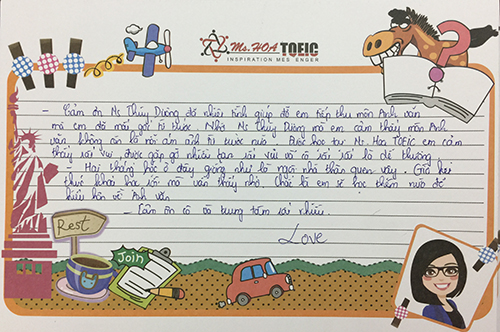 Ms. HOA TOEIC
INSPIRATION MESSENGER
- Cảm ơn Ms Thùy Dương đã nhiệt tình giúp đỡ em tiếp thu môn Anh văn
mà em đã mất gốc từ trước. Nhờ Ms Thùy Dương mà em cảm thấy môn Anh
văn không còn là nỗi ám ảnh từ trước nữa. Được học tại Ms Hoa TOEIC em cảm
thấy rất vui được gặp gỡ nhiều bạn rất vui và cô rất rất là dễ thương
- Hai tháng học ở đây giống như là ngôi nhà thân quen vậy. Giờ kết
thúc khóa học rồi mà vẫn thấy nhớ. Chắc là em sẽ học thêm nữa để
hiểu hơn về Anh văn
- Cảm ơn cô và trung tâm rất nhiều.
Love
Rest
Join